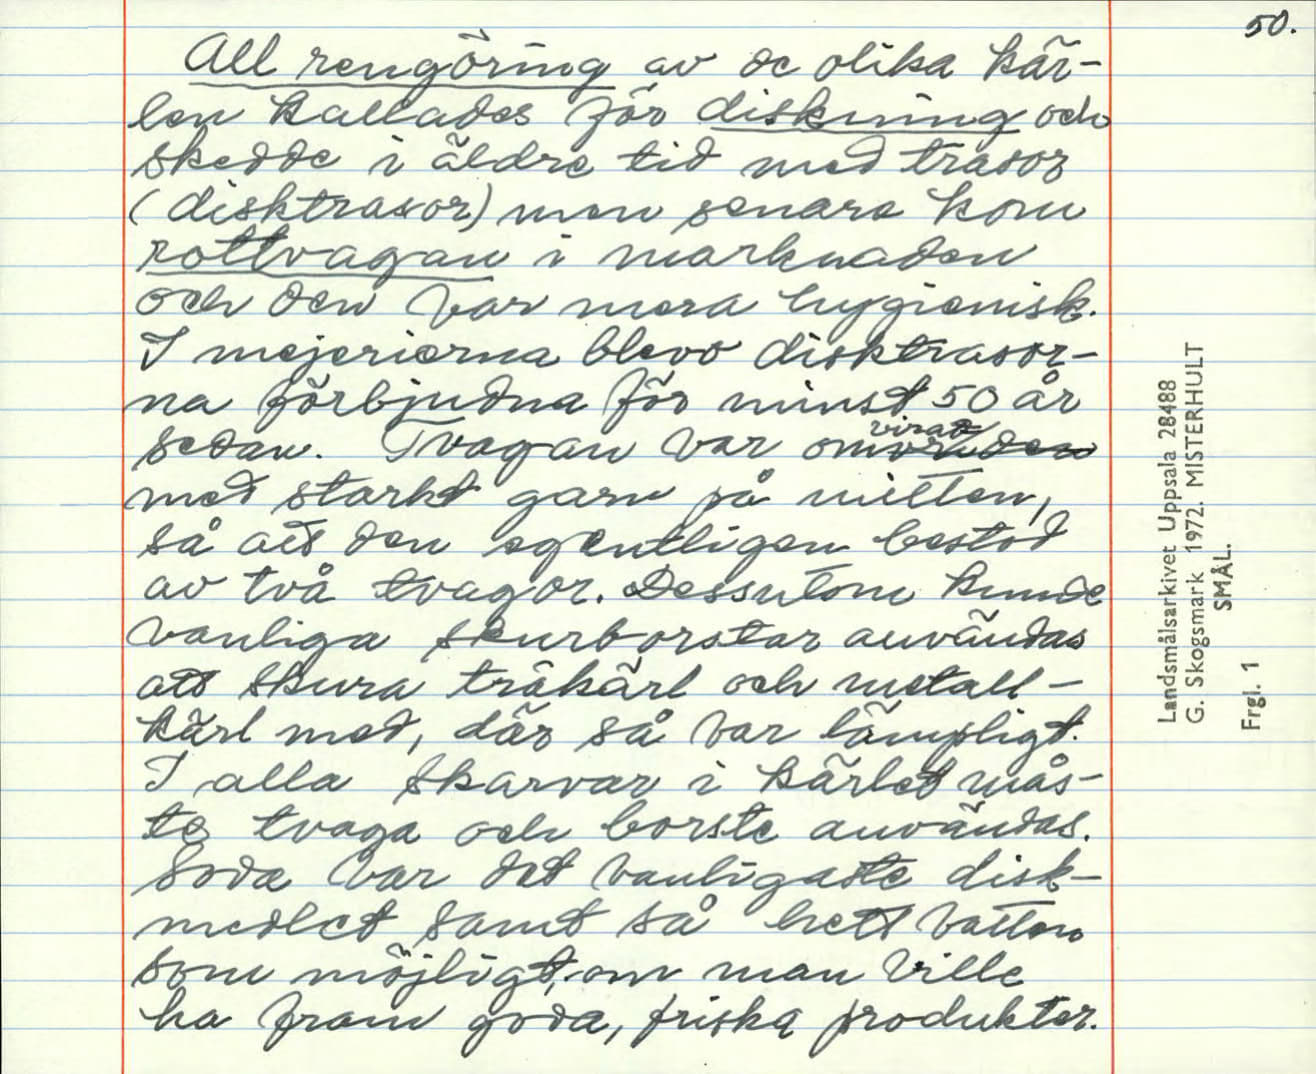 50.
All rengöring av de olika kär-
len kallades för diskning och
skedde i äldre tid med trasor
(disktrasor) men senare kom
rottvagan i marknaden
och den var mera hygienisk.
I mejerierna blevo disktrasor-
na förbjudna för minst 50 år
sedan. Tvagan var omvirad
med starkt garn på mitten,
så att den egentligen bestod
av två tvagor. Dessutom kunde
vanliga skurborstar användas
att skura träkärl och metall-
kärl med, där så var lämpligt.
I alla skarvar i kärlet mås-
te tvaga och borste användas.
Soda var det vanligaste disk-
medlet samt så hett vatten
som möjligt, om man ville
ha fram goda, friska produkter.
Landsmålsarkivet Uppsala 28488
G. Skogsmark 1972. MISTERHULT
SMÅL.
Frgl. 1